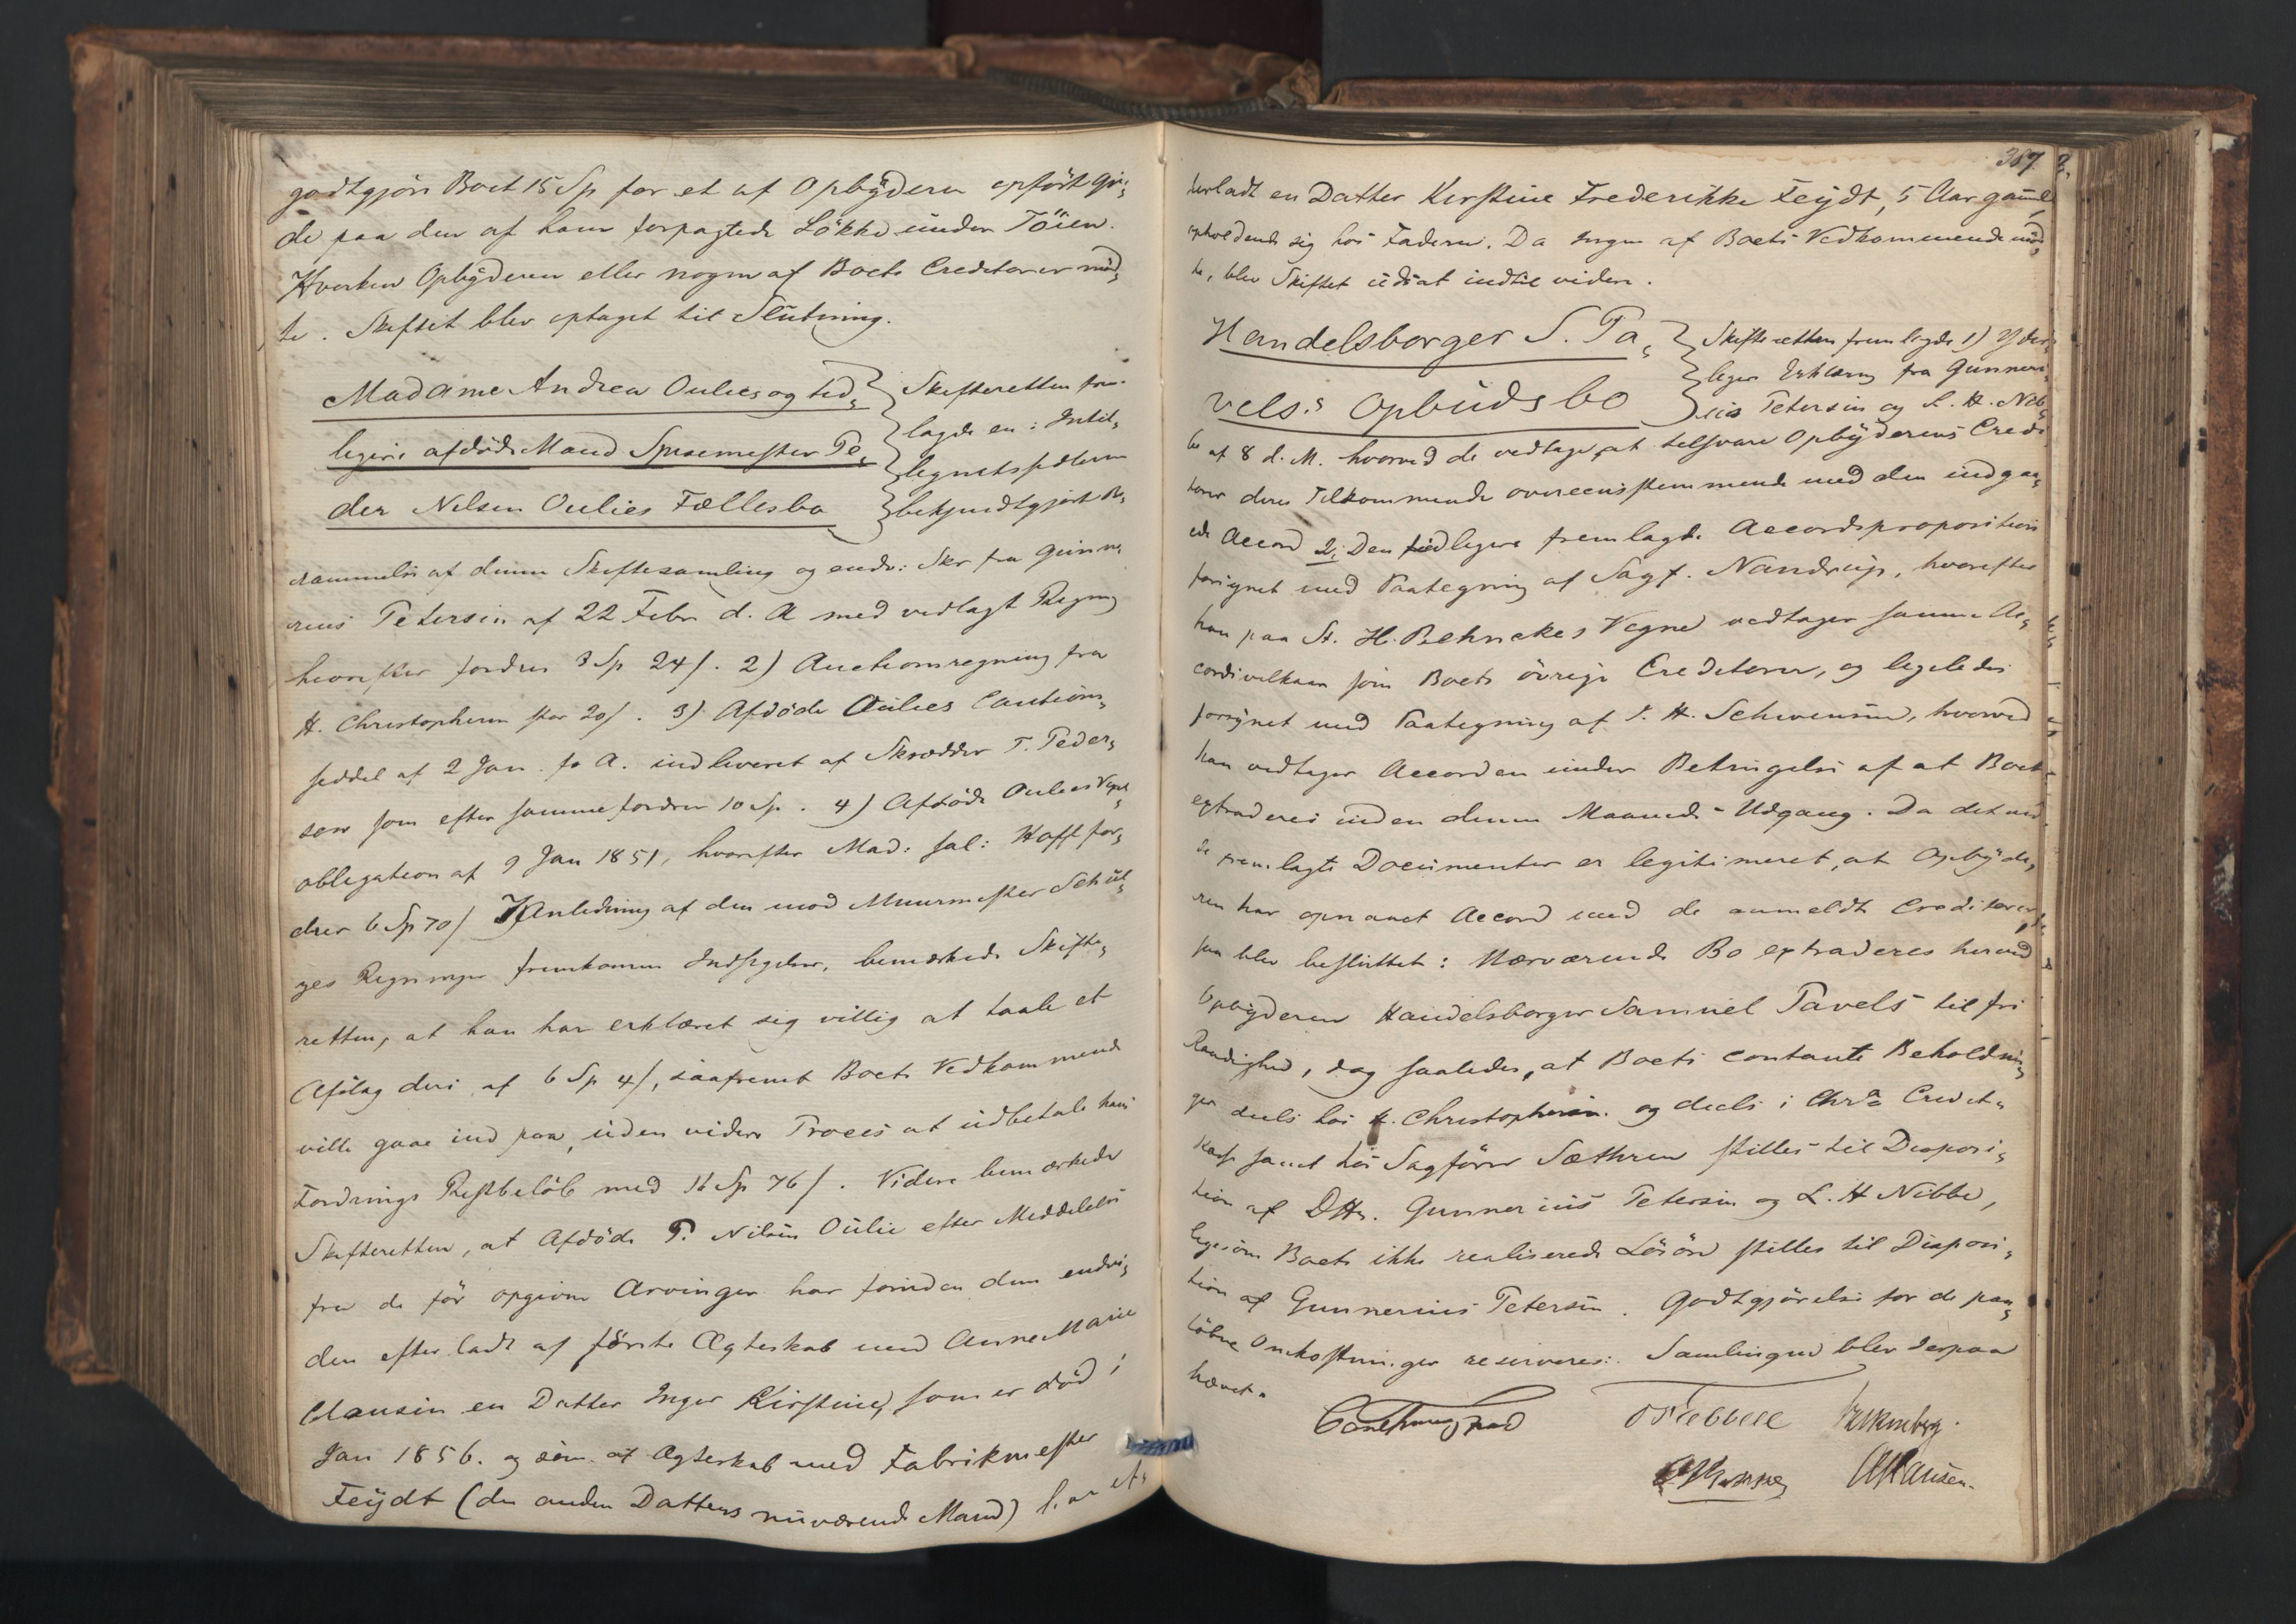 godtgjøre Boet 15 Sp for et af Opbyderen opført Gjær,
de paa den af ham forpagtede Løkke under Töien.
Hverken Opbyderen eller nogen af Boets Creditorer mød,
te. Skiftet blev optaget til Slutning.
Madame Andrea Oulies og tid,
ligere afdöde Mand Spisemester Pe,
der Nilsen Oulies Fællesbo
Skifteretten frem
lagde en: Intil,
legnetssedlerne
bekjendtgjort Be,
rammelse af denne Skiftesamling og endv: Skr fra Gunne,
rius Petersen af 22 Febr d. A med vedlagt Regning
hvorefter fordres 3 Sp 24 s. 2) Auctionsregning fra
H. Christophersen stor 20 s. 3) Afdöde Oulies Cautions,
seddel af 2 Jan. f. A. indleveret af Skrædder T. Peder,
sen som efter samme fordrer 10 Sp. 4) Afdöde Oulies
obligation af 9 Jan 1851, hvorefter Mad: sal: Hoff for,
drer 6 Sp 70 s I Anledning af den mod Muurmester Schül,
ges Regninger fremkomne Indsigelser, bemærkede Skifte,
retten, at han har erklæret sig villig at taale et
Afslag deri af 6 Sp 4 s, saafremt Boets Vedkommende
ville gaae ind paa, uden videre Proces at udbetale hans
Fordrings Restbelöb med 16 Sp 76 s. Videre bemærkede
Skifteretten, at Afdöde P. Nilsen Oulie efter Meddelelse
fra de för opgivne Arvinger har foruden dem endvi,
den efterladt af förste Ægteskab med Anne Marie
Clausen en Datter Inger Kirstine, som er död i
Jan 1856. og som af Ægteskab med Fabrikmester
Feydt (den anden Datters nuværende Mand) har ef,
387
terladt en Datter Kirstine Frederikke Feydt, 5 Aar gammel,
opholdende sig hos Faderen. Da Ingen af Boets Vedkommende mød,
te, blev Skiftet udsat indtil videre.
Handelsborger S. Pa,
vels's Opbudsbo
Skifteretten fremlagde 1) Yder,
ligere Erklæring fra Gunneri,
us Petersen og L. H. Nib,
be af 8 d. M. hvorved de vedtage, at tilsvare Opbyderens Credi
torer deres Tilkommende overeensstemmende med den indgaa,
ede Accord 2, Den tidligere fremlagde Accordsproposition
forsynet med Paategning af Sagf. Nandrup, hvorefter
han paa St. H. Behnckes Vegne vedtager samme Ac,
cordsvilkaar som Boets övrige Creditorer, og ligeledes
forsynet med Paategning af J. H. Schwensen, hvorved
han vedtager Accorden under Betingelse af at Boet
extraderes inden denne Maaneds Udgang. Da det ved
de fremlagte Documenter er legitimeret, at Opbyde,
ren har opnaaet Accord med de anmeldte Creditorer,
saa blev besluttet: Nærværende Bo extraderes herved
Opbyderen Handelsborger Samuel Pavels til fri
Raadighed, dog saaledes, at Boets contante Beholdnin,
ger deels hos H. Christophersen og deels i Chra Credit,
kasse samt hos Sagförer Sæthren stilles til Disposi,
tion af DHr. Gunnerius Petersen og L. H Nibbe,
ligesom Boets ikke realiserede Lösöre stilles til Disposi,
tion af Gunnerius Petersen. Godtgjörelse for de paa,
löbne Omkostninger reserveres. Samlingen blev derpaa
hævet.